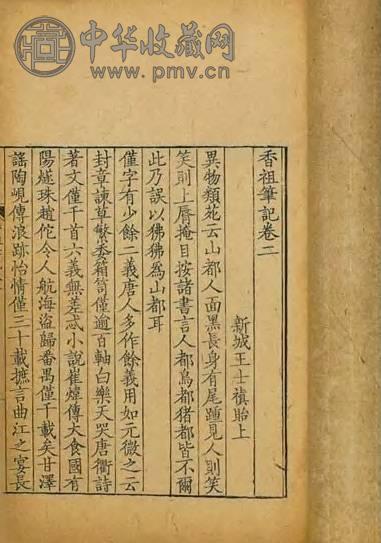 中华收藏网
www.pmv.cn
香祖筆記卷二
新城王士禛貽上
異物類苑云山都人面黑長身有尾踵見人則笑
笑則上脣掩目按諸書言人都鳥都猪都皆不爾
此乃誤以狒狒爲山都耳
僅字有少餘二義唐人多作餘義用如元微之云
封章諫草繁委箱笥僅逾百軸白樂天哭唐衢詩
著文僅千首六義無差忒小說崔煒傳大食國有
陽燧珠趙佗令人航海盜歸番禺僅千載矣甘澤
謠陶峴傳浪跡怡情僅三十載摭言曲江之宴長